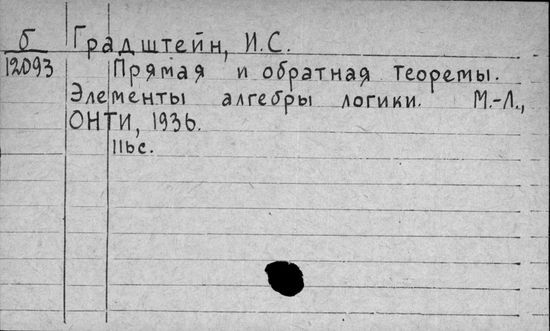 б Градштейн, И.С.
12093 Прямая и обратная теоремы.
Элементы алгебры логики. М.-Л.,
ОНТИ, 1936.
116с.